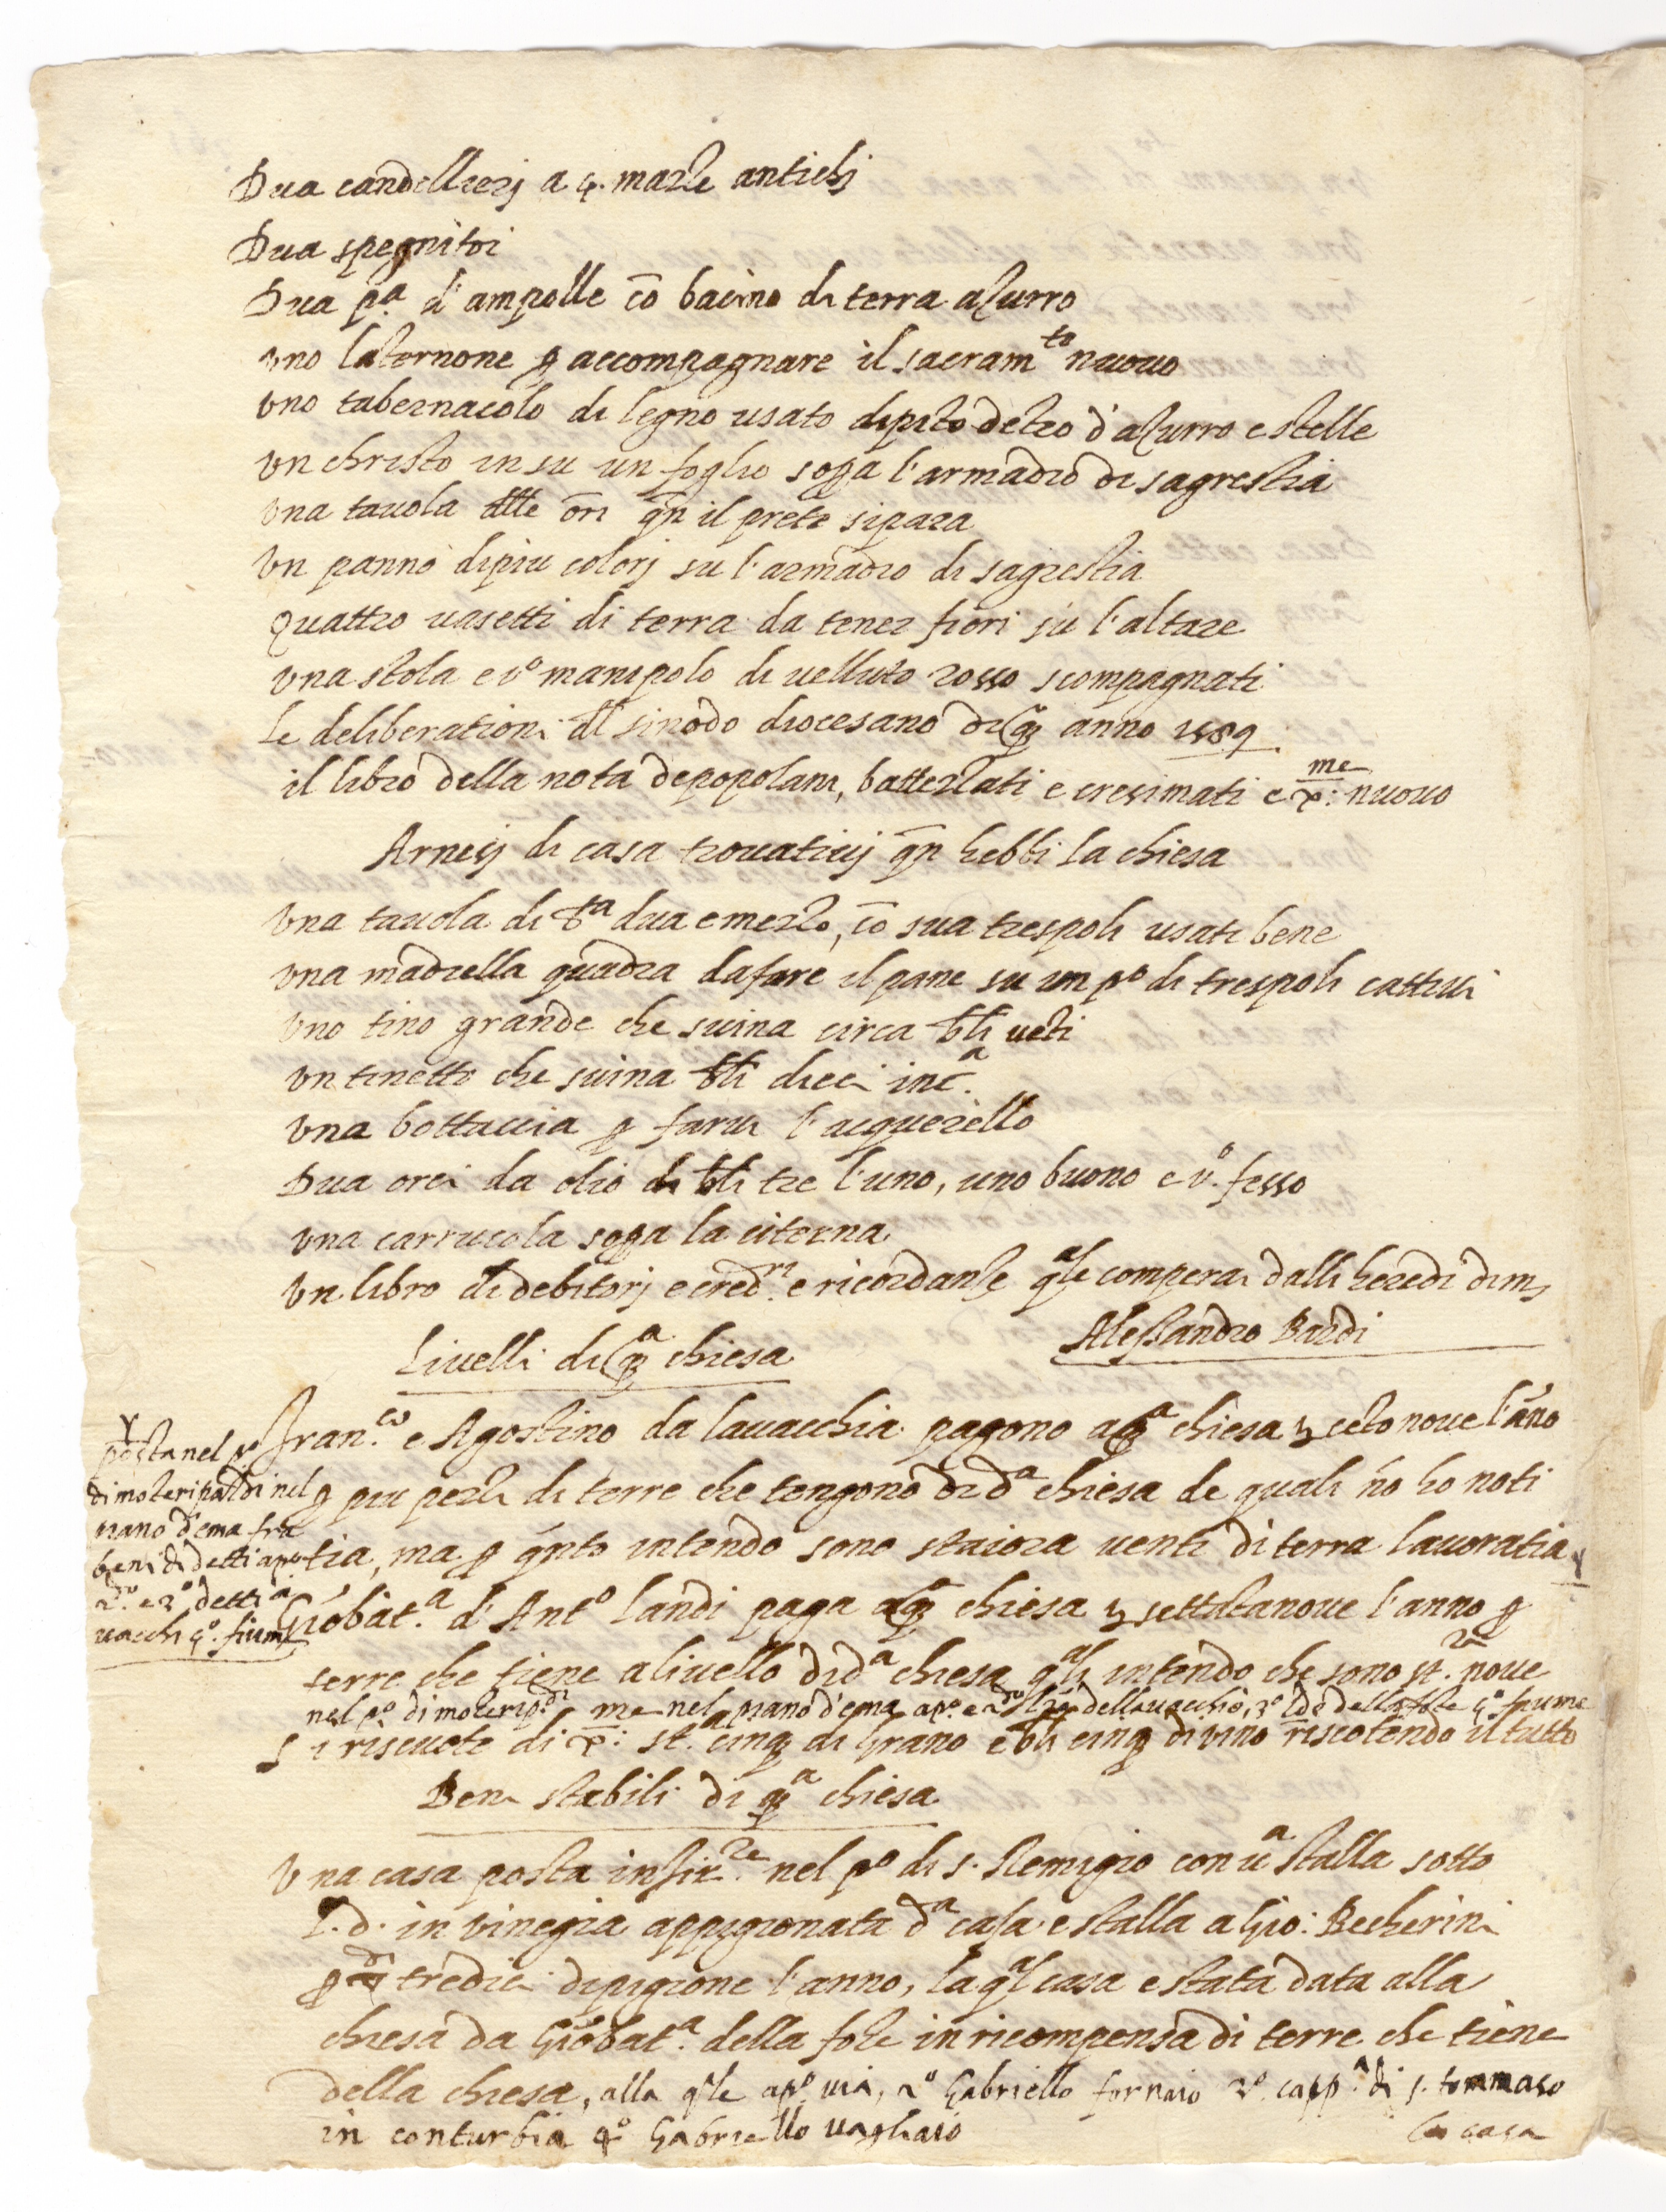 Dua candellieri a 4. mazze antichi
Dua spegnitoi
Dua p.ª d'ampolle cō bacino di terra azurro
Uno lanternone p accompagnare il sacramto nuovo
Uno tabernacolo di legno usato dipīto dētro d'azurro e stelle
Un christo in su un foglio sopa l'armadio di sagrestia
Una tavola dlle or̄i qn̄ il prete si para
Un panno di piu colori su l'armadio di sagrestia
Quattro vasetti di terra da tener fiori su l'altare
Una stola e vº manipolo di velluto rosso scompagnati
Le deliberationi dl sinodo diocesano di qº anno 1589
il libro della nota de popolani, battezzati e cresimati e nuovo
Arnesi di casa trovativi qn̄ hebbi la chiesa
Una tavola di bra dua e mezzo, cō sua trespoli usati bene
Una madiella quadra da fare il pane su un pº di trespoli cattivi
Uno tino grande che svina circa bli vēti
Un tinetto che svina bli dieci inc.ª
Una bottaccia p farvi l'acquerello
Dua orci da olio di bli tre l'uno, uno buono e vº fesso
Una carrucola sopa la citerna
Un libro di debitori e cred.ri e ricordanze qle comperai dalli heredi di m
Alessandro Bardi
Livelli di qª chiesa
Fran.co e Agostino da lavacchia pagono a qª chiesa cētonove l'ano
p piu pezzi di terre che tengono di dª chiesa de quali nō ho noti
tia, ma p qnto intendo sono staiora venti di terra lavoratia
posta nel pº
di moteripaldi nel
piano d'ema fra
beni di detti a pº
2º e 3º detti da
vacchi 4º fiume
Giobat.ª d'Antº Landi paga a qª chiesa settātanove l'anno p
terre che tiene a livello di dª chiesa qli intendo che sono st. nove
nel pº di moterip.di nel piano d'ema a pº e 2º della vacchio, 3º della fōte 4º fiume
Si riscuote di st. cinq di grano e bli cinq di vino riscotendo il tutto
Beni stabili di qª chiesa
Una casa posta in fir.ze nel pº di s. Remigio con uª stalla sotto
l.d. in vinegia appigionata dª casa e stalla a Gio: Becherini
p tredici di pigione l'anno, la ql casa e stata data alla
chiesa da Giobat.ª della fōte in ricompensa di terre che tiene
della chiesa, alla qle a pº via, 2º Gabriello fornaio 3º capp.ª di s. tommaso
in conturbia 4º Gabriello vagliaio
la casa